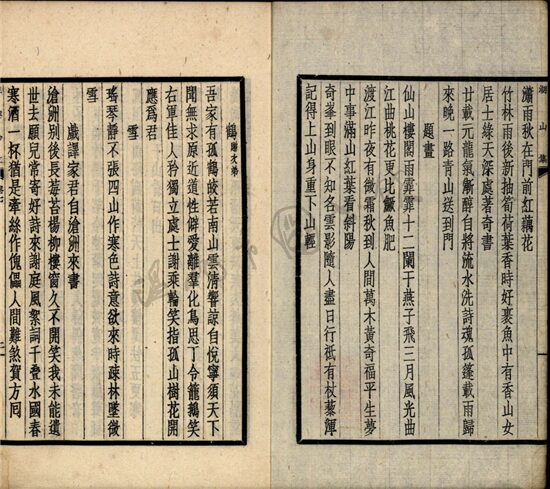 瀟雨秋在門前紅藕花
竹林雨後新抽筍荷葉香時好裹魚中有香山女
居士綠天深處著奇書
廿載元龍氣漸醇自將流水洗詩魂孤蓬載雨歸
來晚一路青山送到門
題畫
仙山樓閣雨霏霏十二闌干燕子飛三月風光曲
江曲桃花更比鱖魚肥
渡江昨夜有微霜秋到人間萬木黃奇福平生夢
中事滿山紅葉看斜陽
奇峯到眼不知名雲影隨人盡日行祗有杖藜渾
記得上山身重下山輕
鶴
吾家有孤鶴皎若南山雲清聲諒自悅寧須天下
聞無求原近道性僻愛離羣化鳥思丁令籠鵝笑
右軍佳人矜獨立處士謝乘輪笑指孤山樹花開
應爲君
雪
瑤琴靜不張四山作寒色詩意欲來時疎林墜微
雪
戲譯家君自滄洲來書
滄洲別後長莓苔楊柳樓窗久不開笑我未能遺
世去願兒常寄好詩來謝庭風絮詞千疊水國春
寒酒一杯猶是牽絲作傀儡人間難煞賀方回